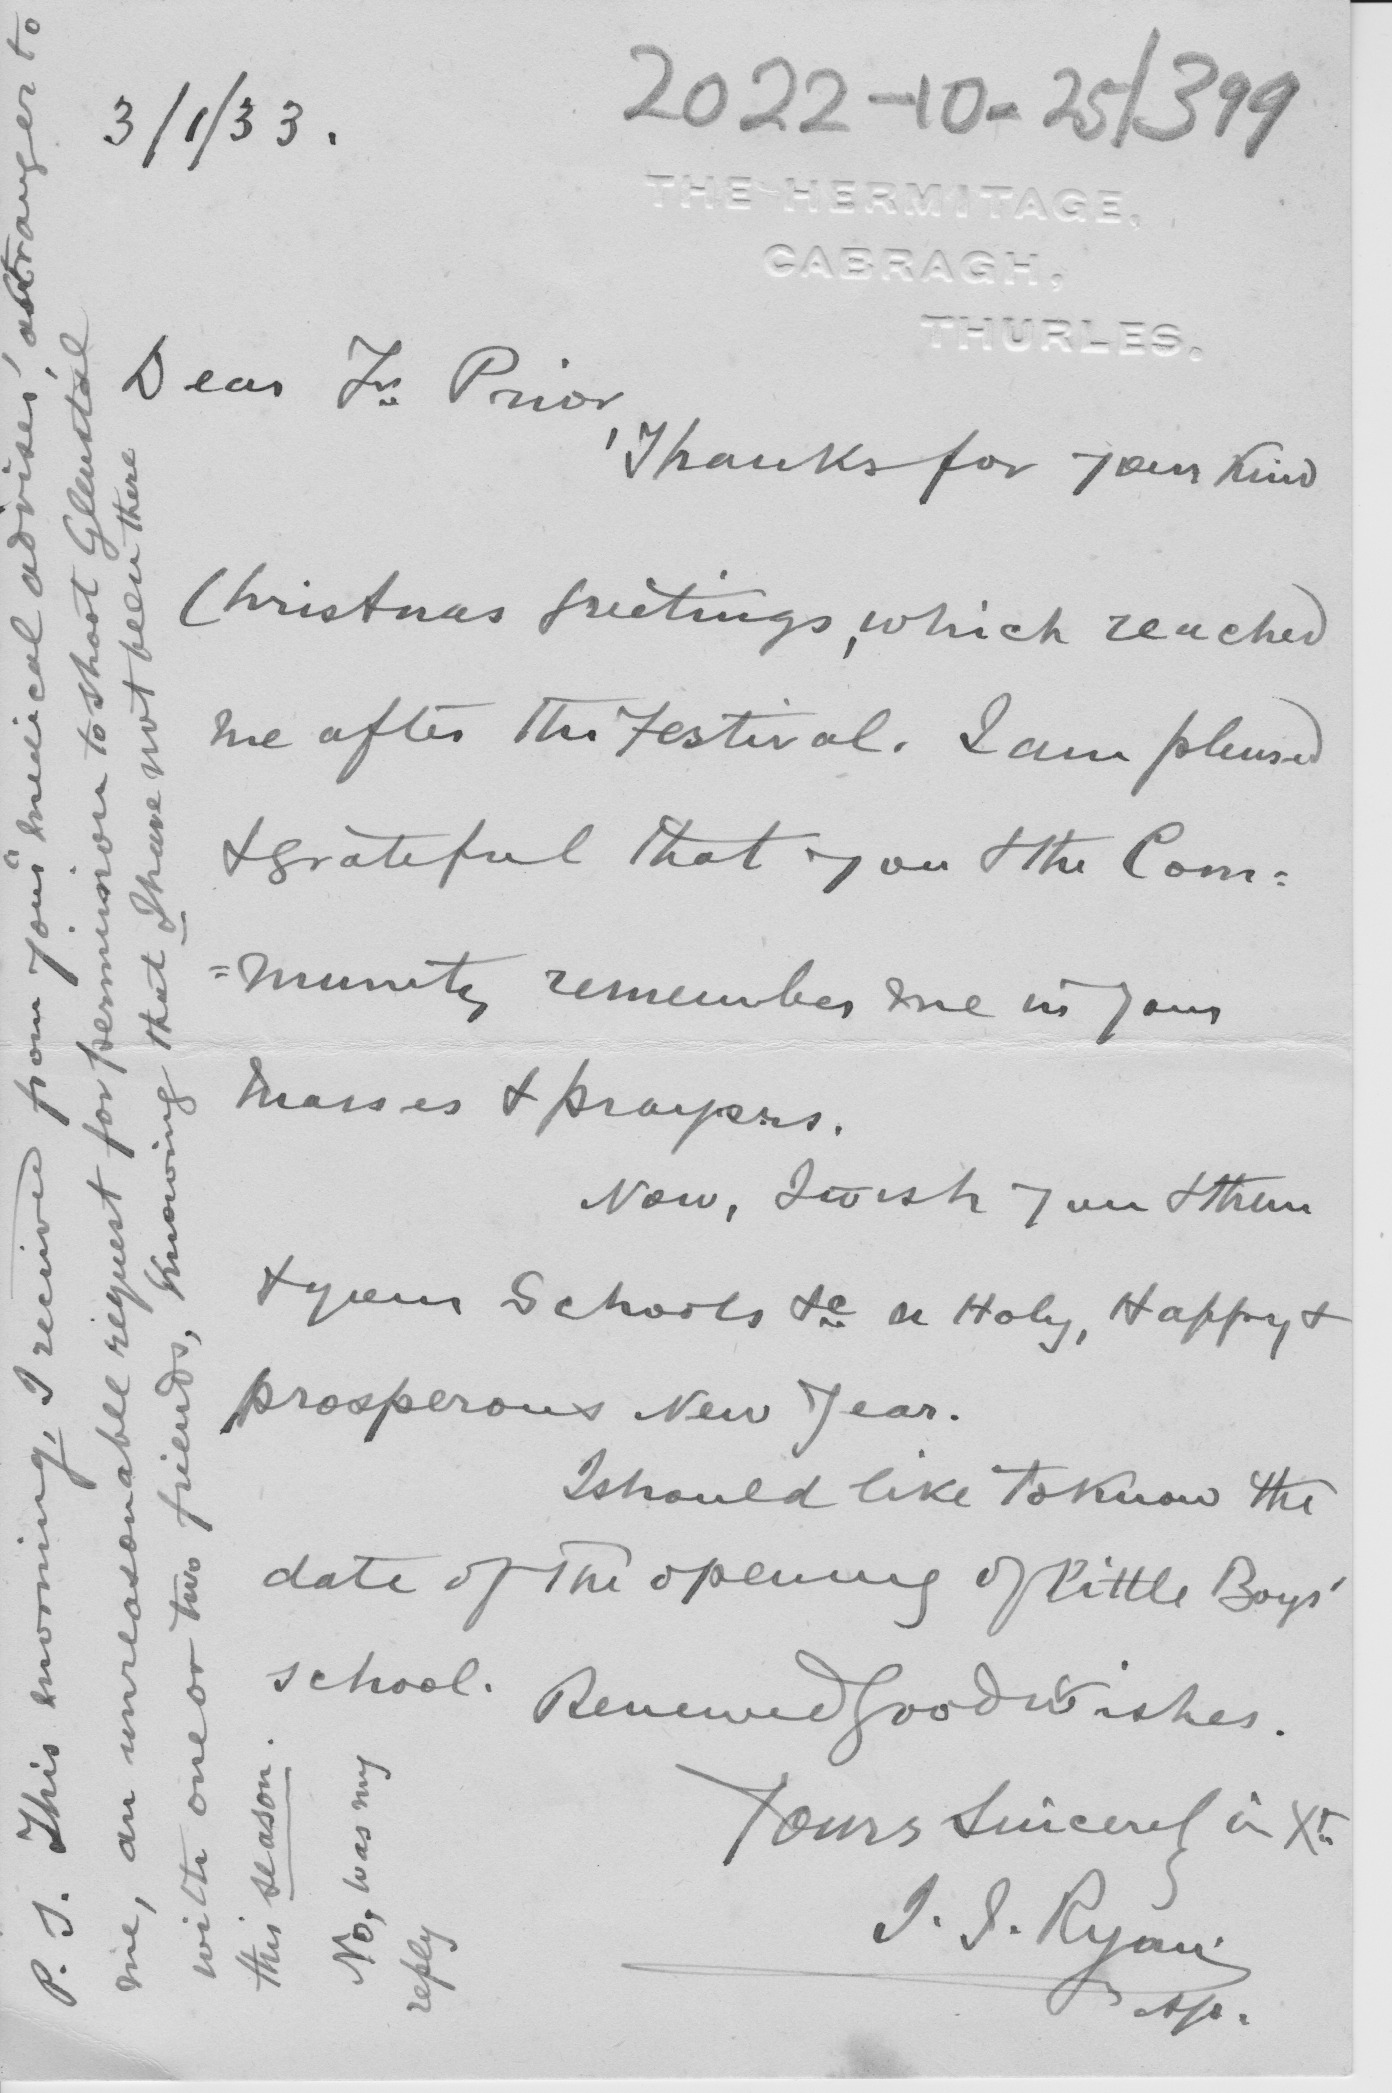 2022-10-25/399
3/1/33.
THE HERMITAGE,
CABRAGH,
THURLES.
Dear Fr. Prior,
Thanks for your kind
Christmas greetings, which reached
me after the Festival. I am pleased
& grateful that you & the Com=
=munity remember me in your
masses & prayers.
Now, I wish you & them
& your Schools &c a Holy, Happy &
prosperous New Year.
I should like to know the
date of the opening of Little Boys'
school. Renewed Good Wishes.
Yours Sincerely in Xt.
J. J. Ryan
P. S. This morning, I received from your 'medical adviser', a stranger to
me, an unreasonable request for permission to shoot Glenstal
with one or two friends, knowing that I have not been there
this season.
No, was my
reply